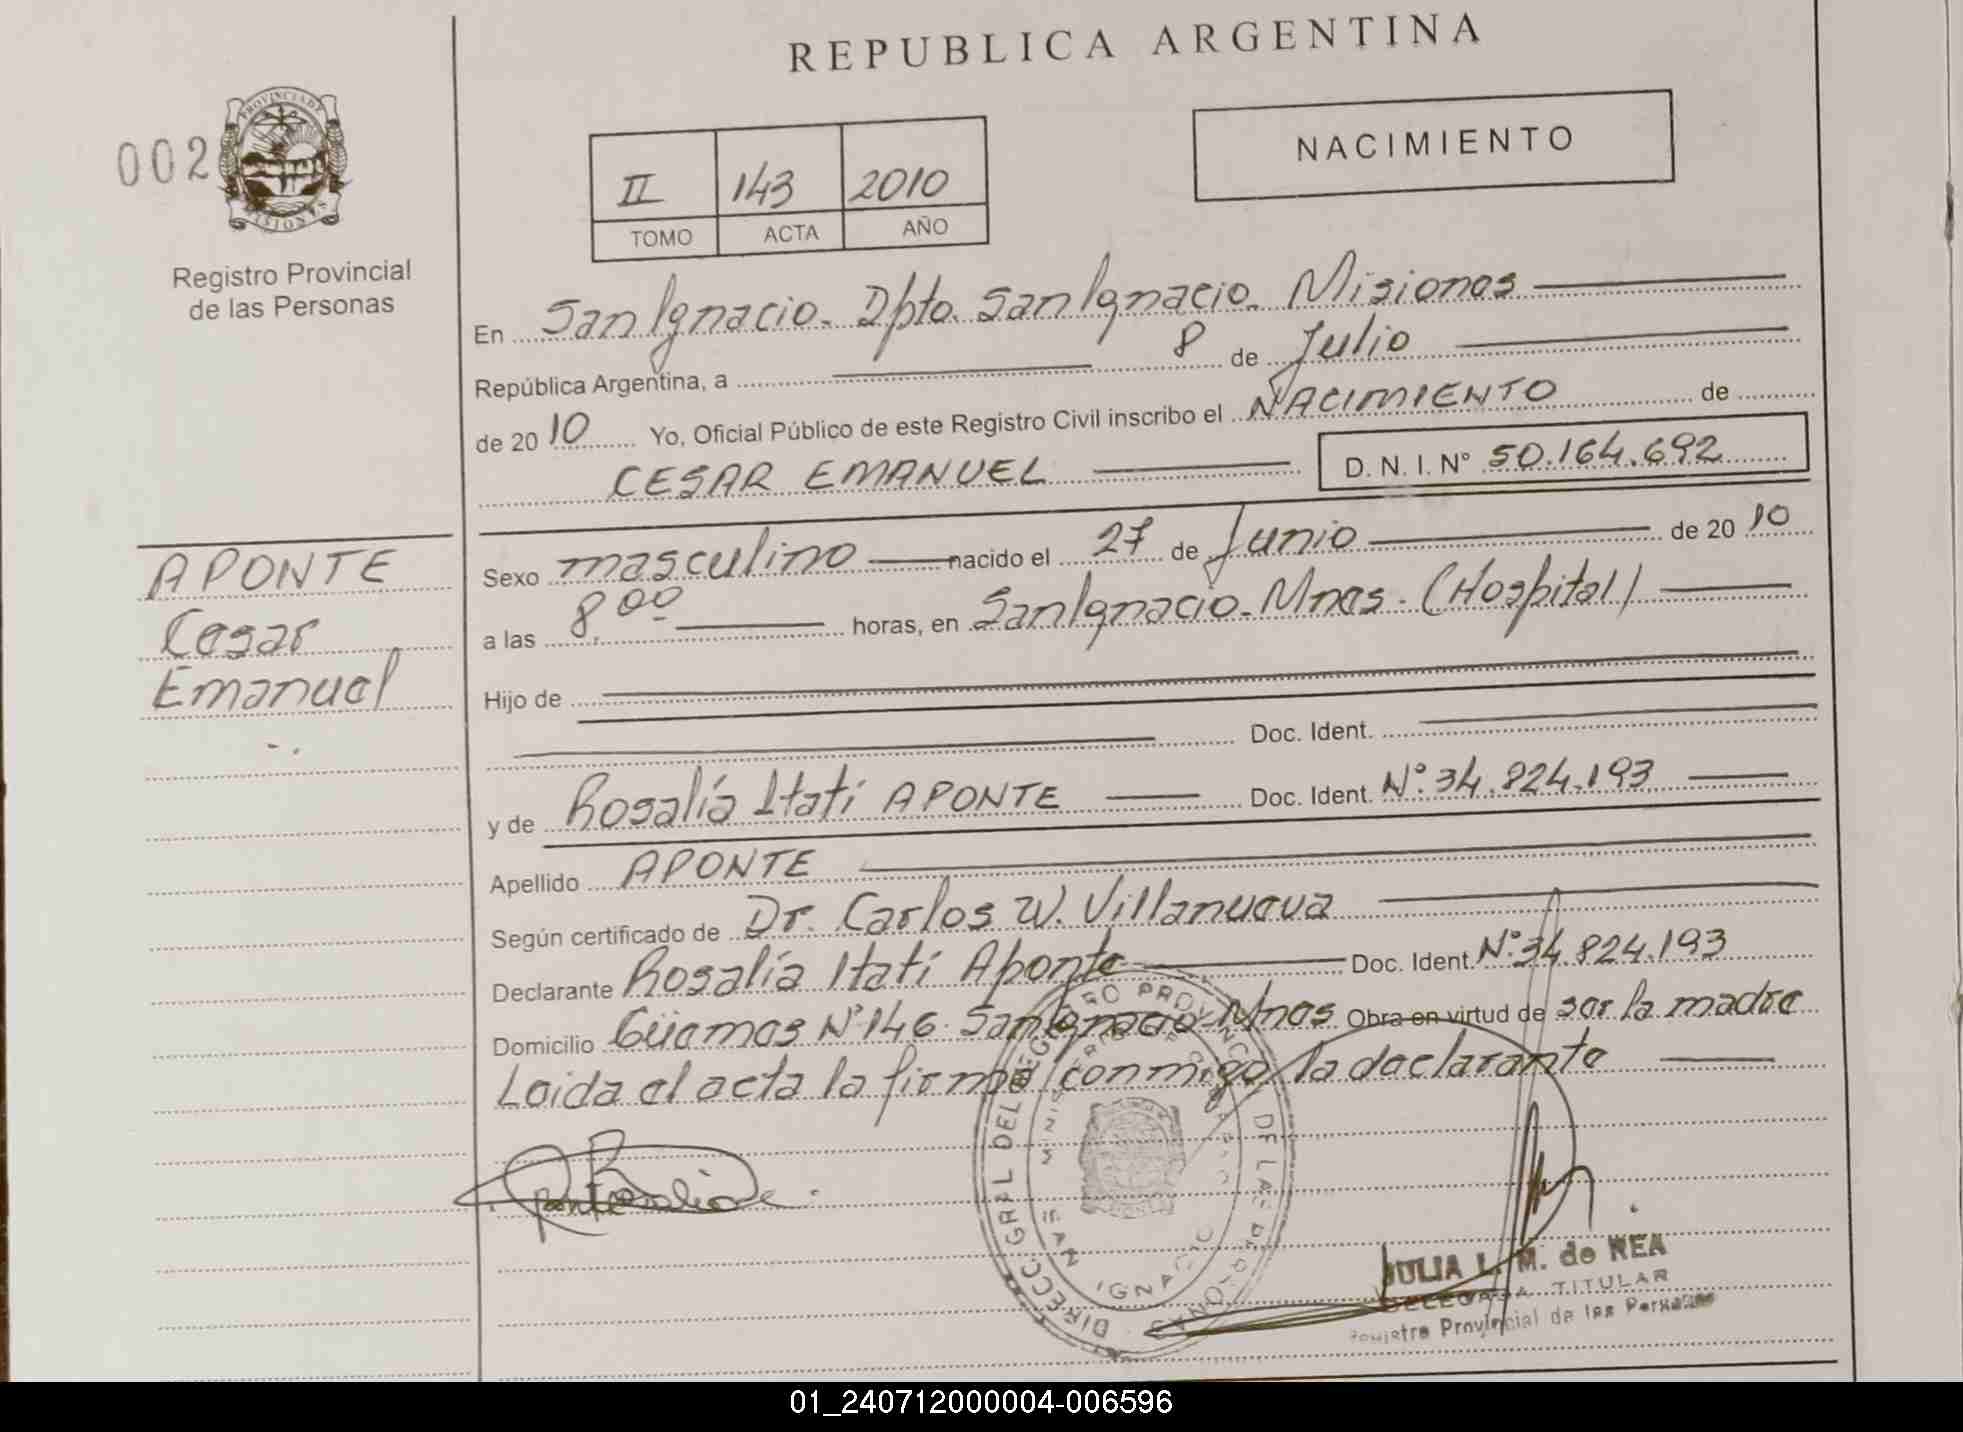 REPUBLICA ARGENTINA
002
PROVINCIA DE
MISIONES
Registro Provincial
de las Personas
II 143 2010
TOMO ACTA AÑO
NACIMIENTO
En San Ignacio. Dpto. San Ignacio. Misiones
República Argentina, a 8 de Julio
de 2010 Yo, Oficial Público de este Registro Civil inscribo el NACIMIENTO de
CESAR EMANUEL D. N. I. N° 50.164.692
APONTE
Cesar
Emanuel
Sexo masculino nacido el 27 de Junio de 2010
a las 8,00 horas, en San Ignacio. Mnes. (Hospital)
Hijo de
Doc. Ident.
y de Rosalía Itatí APONTE Doc. Ident. N° 34.824.193
Apellido APONTE
Según certificado de Dr. Carlos W. Villanueva
Declarante Rosalía Itatí Aponte Doc. Ident. N° 34.824.193
Domicilio Güemes N° 146. San Ignacio Mnes Obra en virtud de ser la madre
Leida el acta la firma conmigo la declarante
DIRECC. GRAL DEL REGISTRO PROVINCIAL DE LAS PERSONAS
SAN IGNACIO
JULIA L. M. de REA
DELEGADA TITULAR
Registro Provincial de las Personas
01_240712000004-006596